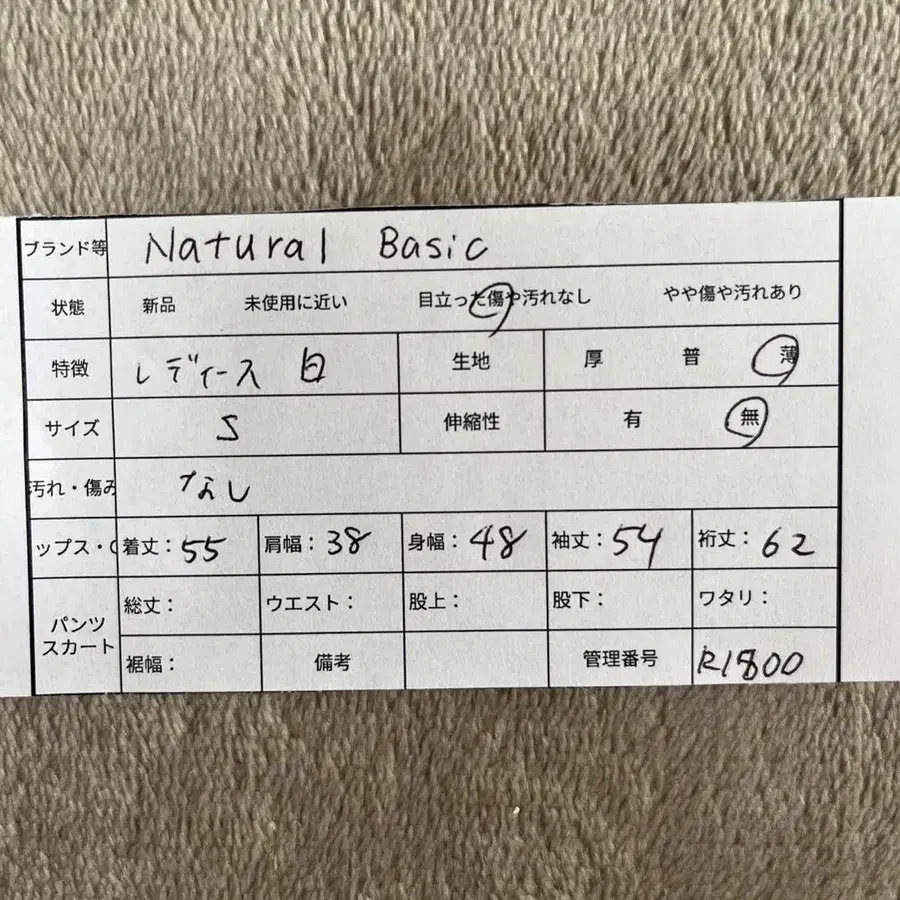 ブランド等 Natural Basic
状態 新品 未使用に近い 目立った傷や汚れなし やや傷や汚れあり
特徴 レディース 白 生地 厚 普 薄
サイズ S 伸縮性 有 無
汚れ・傷み なし
ップス・ 着丈：55 肩幅：38 身幅：48 袖丈：54 裄丈：62
パンツ
スカート
総丈： ウエスト： 股上： 股下： ワタリ：
裾幅： 備考 管理番号 R1800